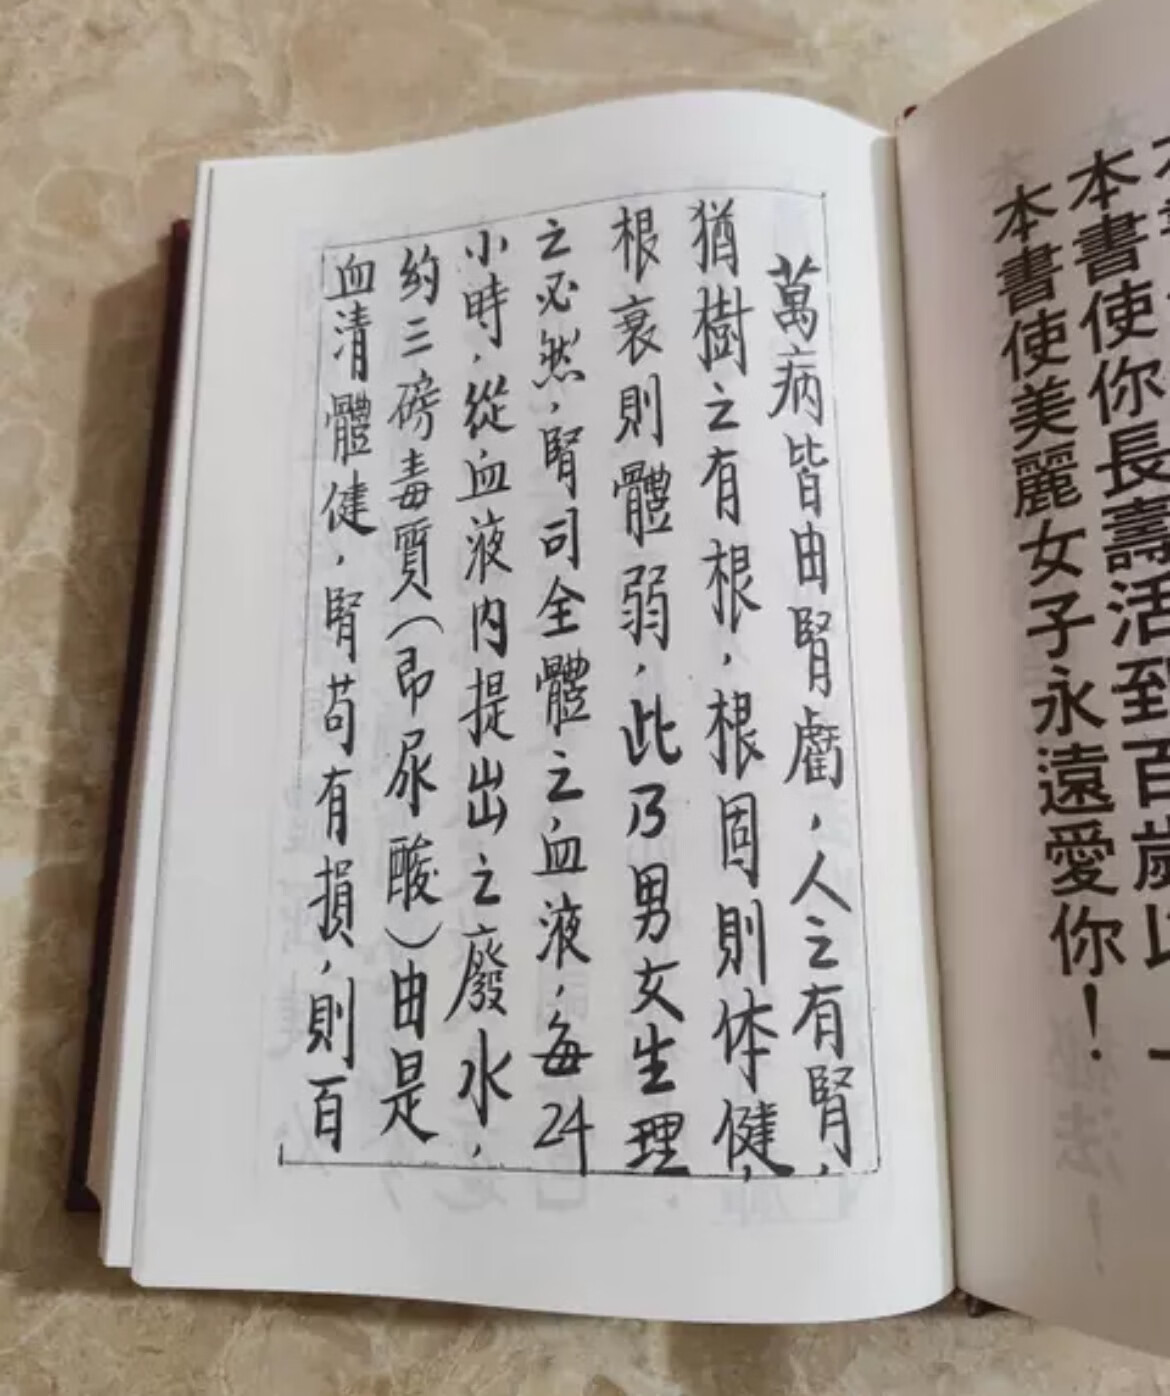 本書使你長壽活到百歲以
本書使美麗女子永遠愛你！
萬病皆由腎虧，人之有腎，
猶樹之有根，根固則体健，
根衰則體弱，此乃男女生理
之必然，腎司全體之血液，每24
小時，從血液內提出之廢水，
約三磅毒質（即尿酸）由是
血清體健，腎苟有損，則百